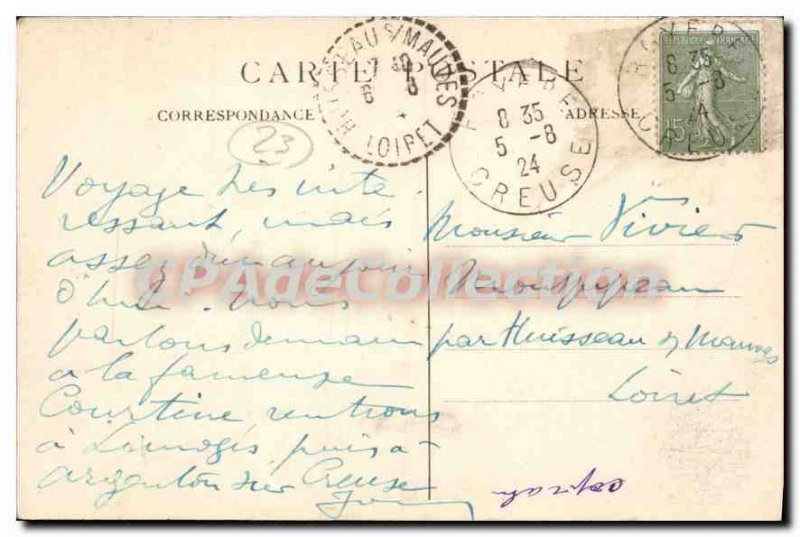 CARTE POSTALE
CORRESPONDANCE
ADRESSE
23
HUISSEAU S/MAUVES
LOIRET
CREUSE
8 35
5 -8
24
REPUBLIQUE FRANÇAISE
15
CREUSE
Voyage très inté
ressant, mais
assez
d'hui. nous
partons demain
a la fameuse
Courtine, rentrons
à Limoges, puis à
argenton sur Creuse
Monsieur Vivier
Montpipeau
par Huisseau s/ Mauves
Loiret
CPAdeCollection